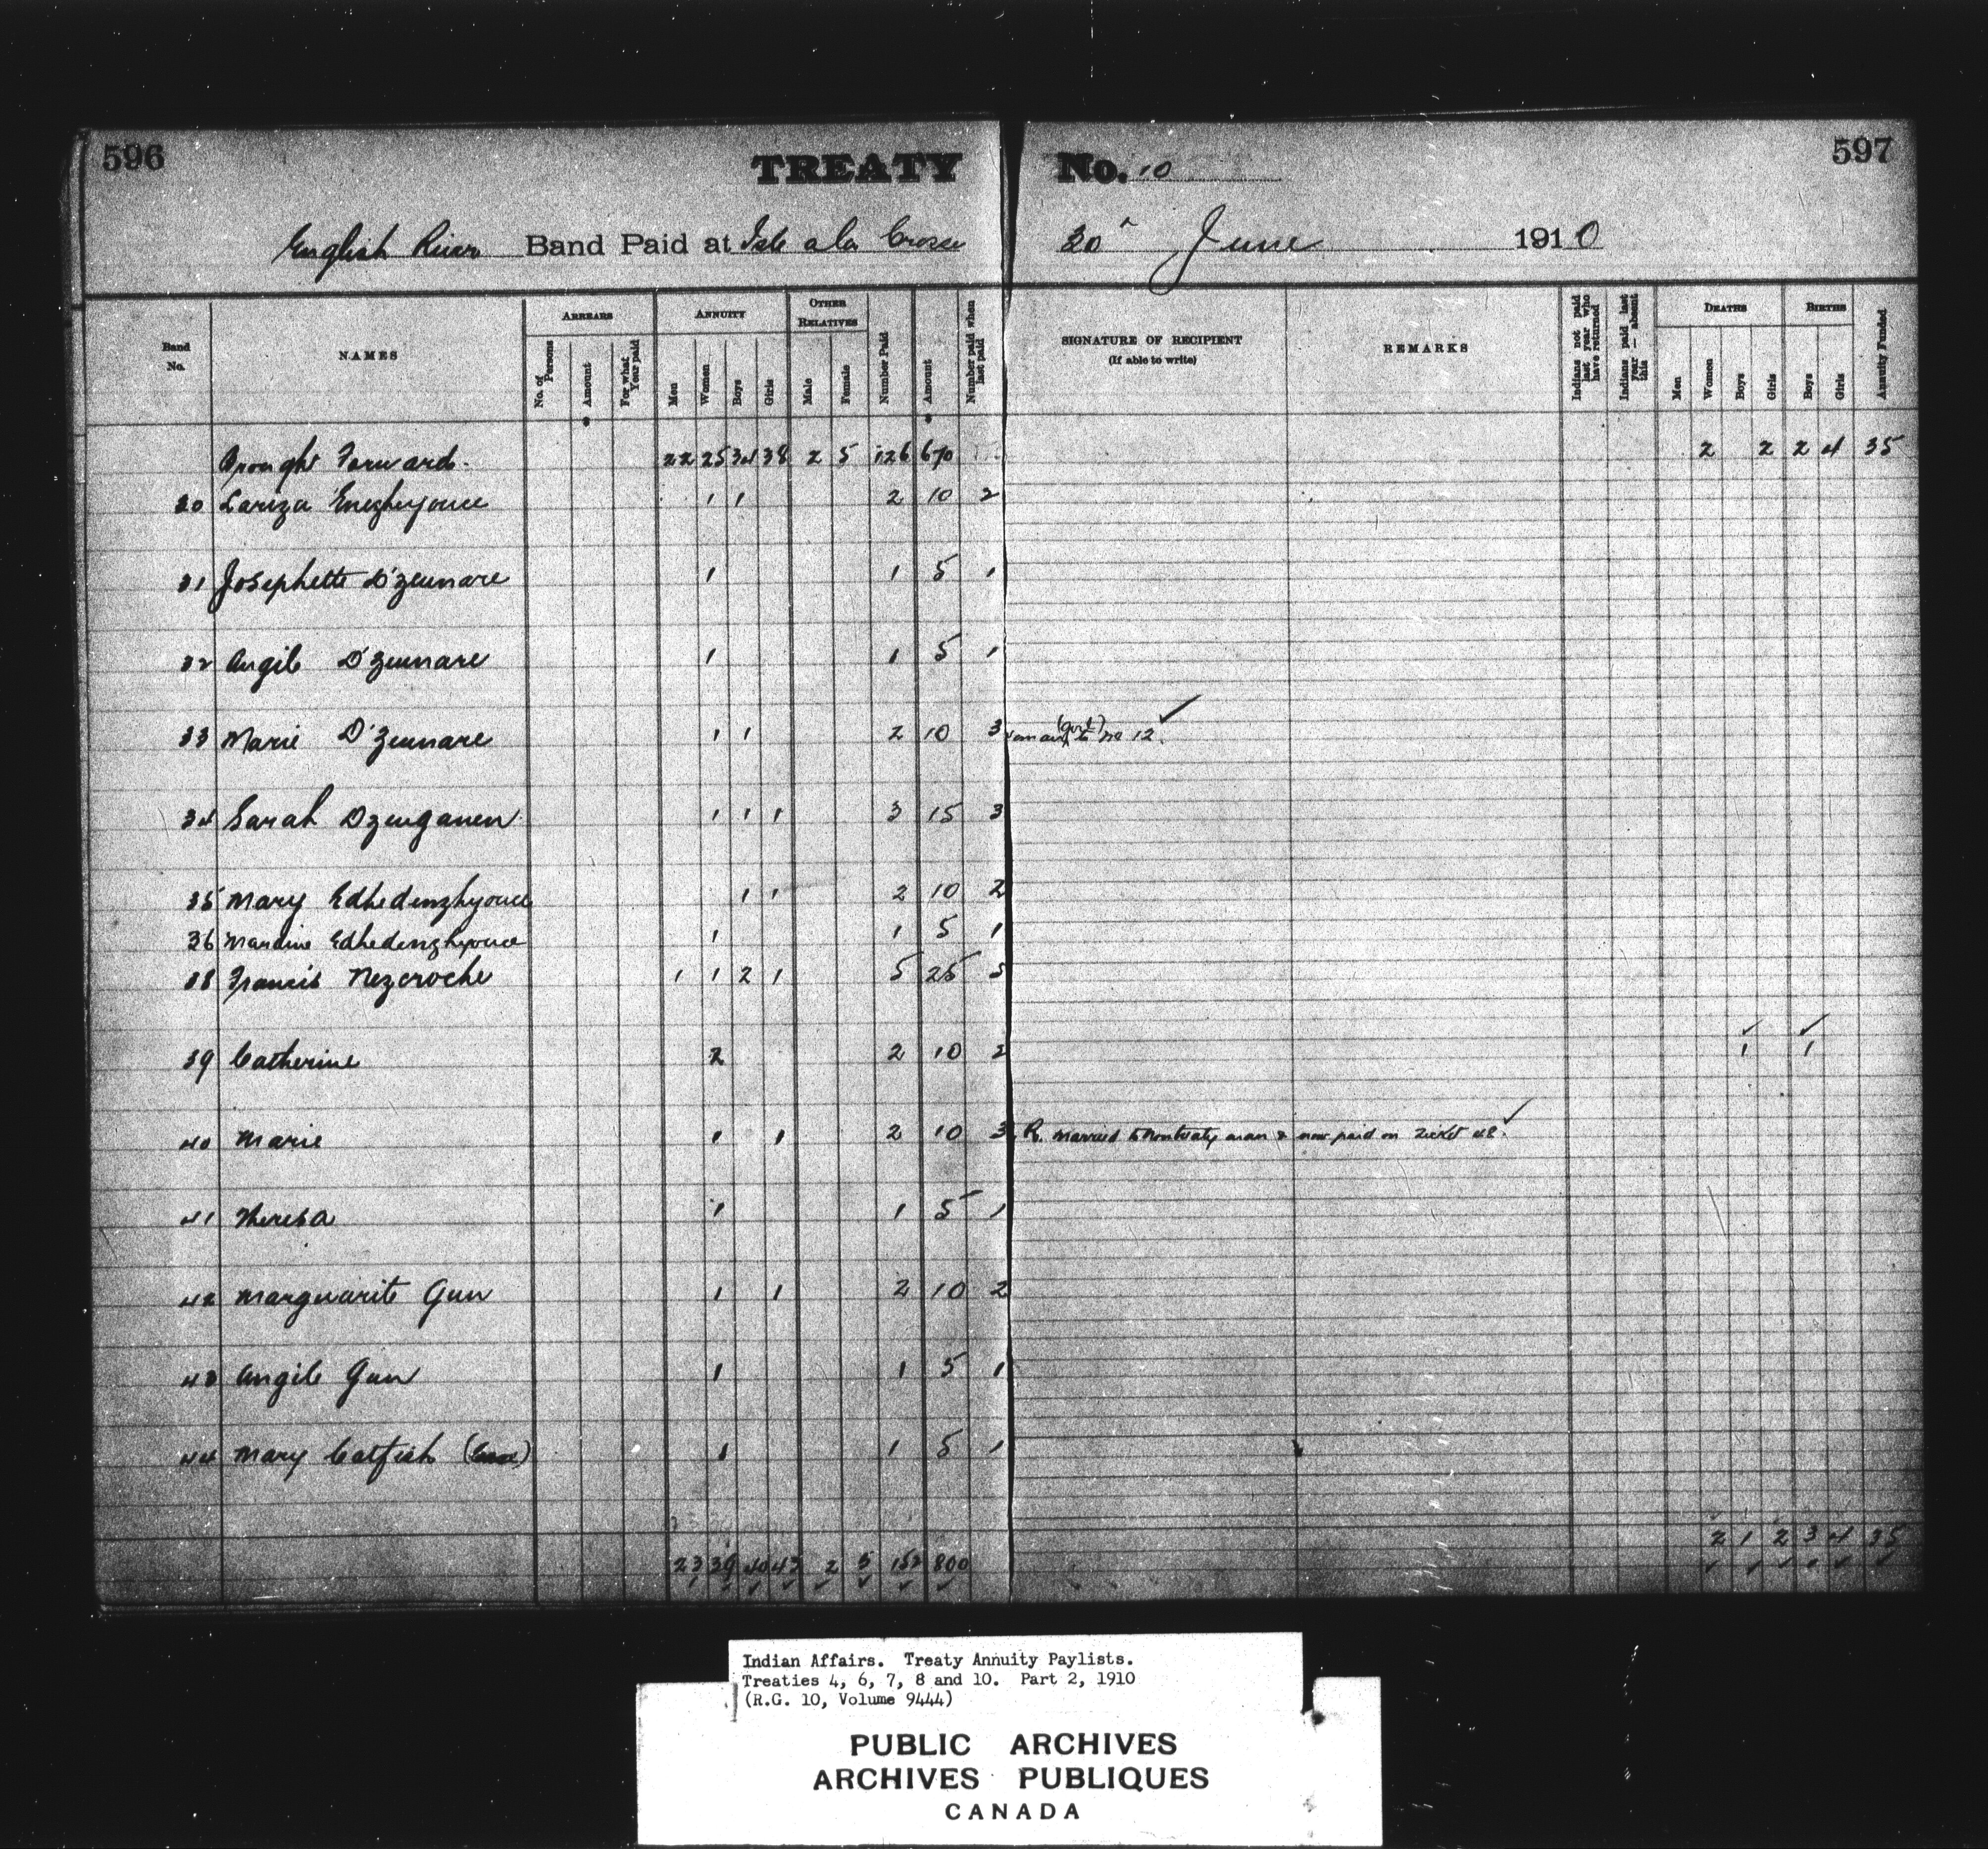 596
597
TREATY No. 10
English River Band Paid at Isle a la Crosse 30 June 1910
Band No.
NAMES
ARREARS
No. of Persons
Amount
For what Year paid
ANNUITY
Men
Women
Boys
Girls
OTHER RELATIVES
Male
Female
Number Paid
Amount
Number paid when last paid
SIGNATURE OF RECIPIENT
(If able to write)
REMARKS
Indians not paid last year who have returned
Indians paid last year — absent this
DEATHS
Men
Women
Boys
Girls
BIRTHS
Boys
Girls
Annuity Funded
Brought Forward. 22 25 34 38 2 5 126 670 2 2 2 4 35
30 Lariza 1 1 2 10 2
31 Josephette D'zeunare 1 1 5 1
32 Angile D'zeunare 1 1 5 1
33 Marie D'zeunare 1 1 2 10 3 to No 12. ✓
34 Sarah Dzenganen 1 1 1 3 15 3
35 Mary Edhedenzhyouce 1 1 2 10 2
36 Edhedenzhyouce 1 1 5 1
38 Francis Nezcroche 1 1 2 1 5 25 5
39 Catherine 2 2 10 2 ✓ 1 ✓ 1
40 Marie 1 1 2 10 3 R. Married to nontreaty man & now paid on Ticket 48. ✓
41 Theresa 1 1 5 1
42 Marguarite Gun 1 1 2 10 2
43 Angile Gun 1 1 5 1
44 Mary Catfish 1 1 5 1
23 39 40 43 2 5 152 800 2 1 2 3 4 35
Indian Affairs. Treaty Annuity Paylists.
Treaties 4, 6, 7, 8 and 10. Part 2, 1910
(R.G. 10, Volume 9444)
PUBLIC ARCHIVES
ARCHIVES PUBLIQUES
CANADA